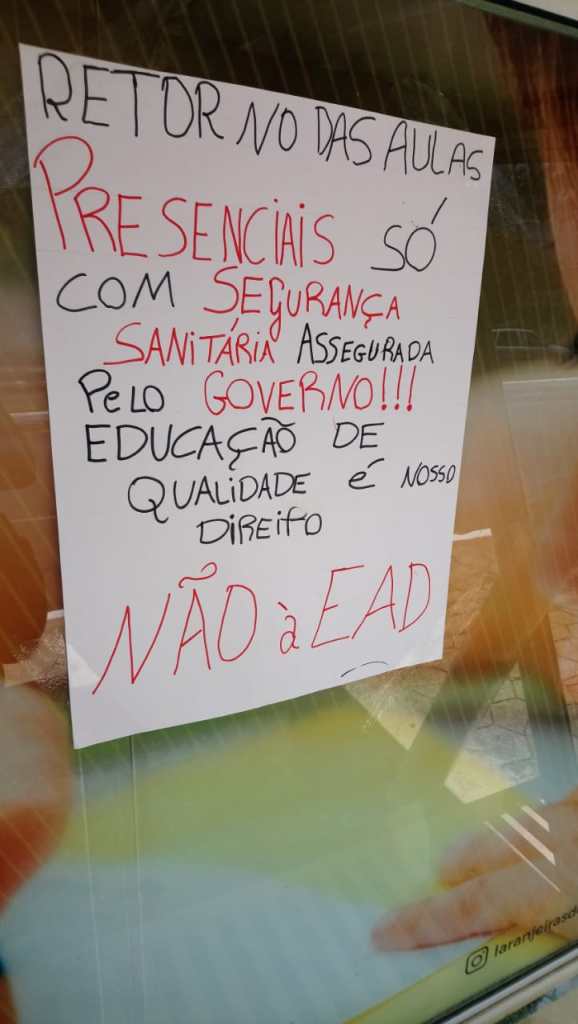 RETORNO DAS AULAS
PRESENCIAIS SÓ
COM SEGURANÇA
SANITÁRIA ASSEGURADA
PELO GOVERNO!!!
EDUCAÇÃO DE
QUALIDADE É NOSSO
DIREITO
NÃO à EAD